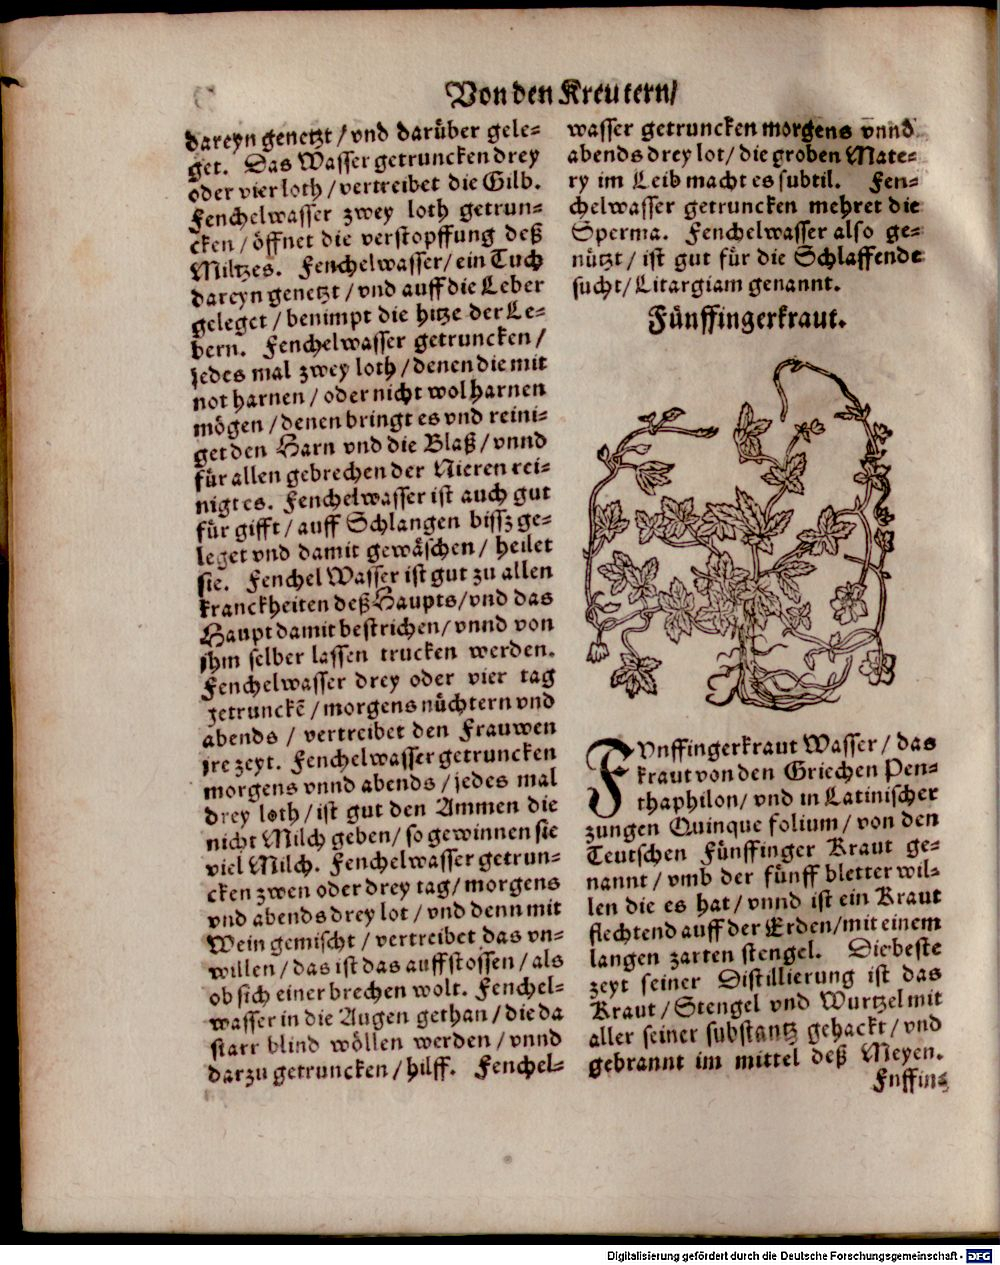 Von den Kreutern/
dareyn genetzt / vnd darüber gele-
get. Das Wasser getruncken drey
oder vier loth / vertreibet die Gilb.
Fenchelwasser zwey loth getrun-
cken / öffnet die verstopffung deß
Miltzes. Fenchelwasser / ein Tuch
dareyn genetzt / vnd auff die Leber
geleget / benimpt die hitze der Le-
bern. Fenchelwasser getruncken /
jedes mal zwey loth / denen die mit
not harnen / oder nicht wol harnen
mögen / denen bringt es vnd reini-
get den Harn vnd die Blaß / vnnd
für allen gebrechen der Nieren rei-
nigt es. Fenchelwasser ist auch gut
für gifft / auff Schlangen bissz ge-
leget vnd damit gewäschen / heilet
sie. Fenchel Wasser ist gut zu allen
kranckheiten deß Haupts / vnd das
Haupt damit bestrichen / vnnd von
jhm selber lassen trucken werden.
Fenchelwasser drey oder vier tag
getrunckẽ / morgens nüchtern vnd
abends / vertreibet den Frauwen
jre zeyt. Fenchelwasser getruncken
morgens vnnd abends / jedes mal
drey loth / ist gut den Ammen die
nicht Milch geben / so gewinnen sie
viel Milch. Fenchelwasser getrun-
cken zwen oder drey tag / morgens
vnd abends drey lot / vnd denn mit
Wein gemischt / vertreibet das vn-
willen / das ist das auffstossen / als
ob sich einer brechen wolt. Fenchel-
wasser in die Augen gethan / die da
starr blind wöllen werden / vnnd
darzu getruncken / hilff. Fenchel-
wasser getruncken morgens vnnd
abends drey lot / die groben Mate-
ry im Leib macht es subtil. Fen-
chelwasser getruncken mehret die
Sperma. Fenchelwasser also ge-
nützt / ist gut für die Schlaffende
sucht / Litargiam genannt.
Fünffingerkraut.
FVnffingerkraut Wasser / das
kraut von den Griechen Pen-
thaphilon / vnd in Latinischer
zungen Quinque folium / von den
Teutschen Fünffinger Kraut ge-
nannt / vmb der fünff bletter wil-
len die es hat / vnnd ist ein Kraut
flechtend auff der Erden / mit einem
langen zarten stengel. Die beste
zeyt seiner Distillierung ist das
Kraut / Stengel vnd Wurtzel mit
aller seiner substantz gehackt / vnd
gebrannt im mittel deß Meyen.
Fnffin-
Digitalisierung gefördert durch die Deutsche Forschungsgemeinschaft - DFG